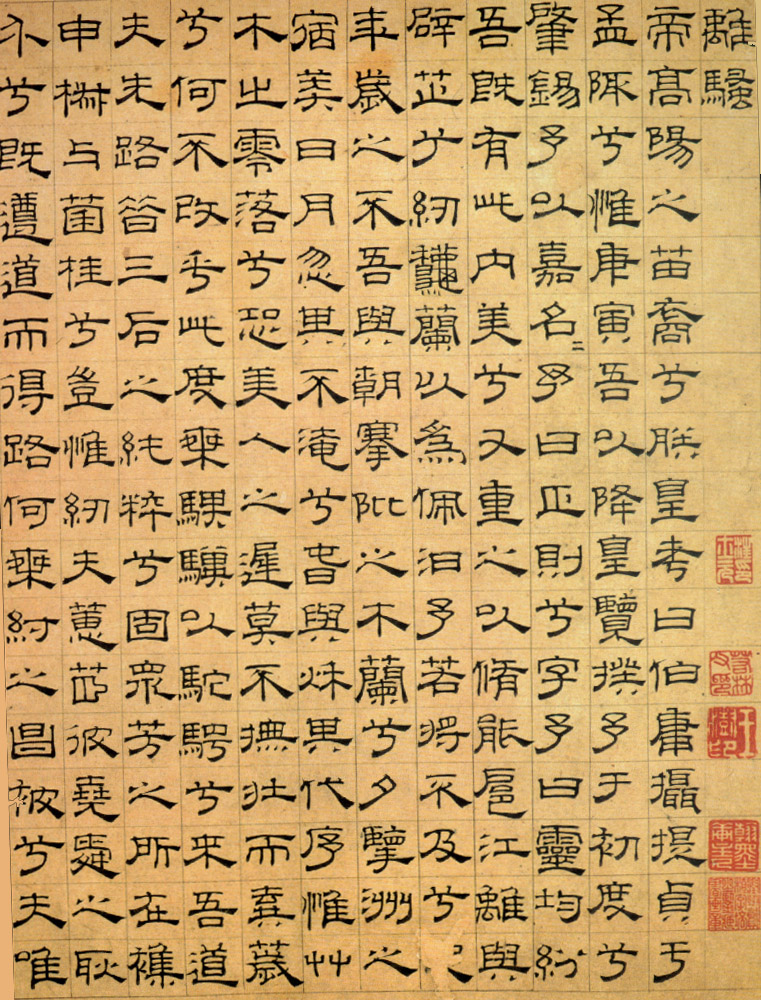 離騷
帝高陽之苗裔兮朕皇考曰伯庸攝提貞于
孟陬兮惟庚寅吾以降皇覽揆予于初度兮
肇錫予以嘉名〻予曰正則兮字予曰靈均紛
吾既有此内美兮又重之以脩能扈江離與
辟芷兮紉龝蘭以爲佩汨予若將不及兮
年歲之不吾與朝搴阰之木蘭兮夕擥洲之
宿莽日月忽其不淹兮春與秌其代序惟艸
木之零落兮恐美人之遲莫不撫壯而棄薉
兮何不改乎此度椉騏驥以駝騁兮来吾道
夫先路昔三后之純粹兮固衆芳之所在襍
申椒与菌桂兮豈惟紉夫蕙茝彼堯舜之耿
介兮既遵道而得路何椉紂之昌被兮夫唯